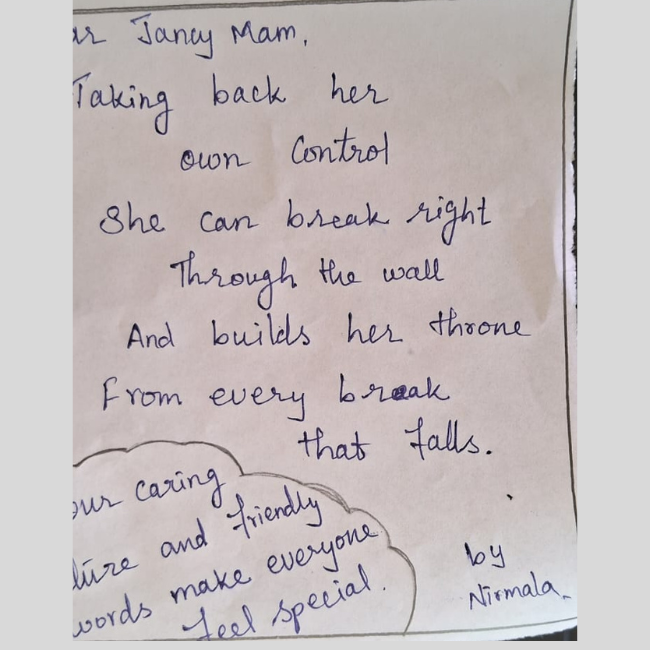 ar Jancy Mam,
Taking back her
own Control
She can break right
Through the wall
And builds her throne
From every break
that falls.
our caring
ture and friendly
words make everyone
feel special.
by
Nirmala